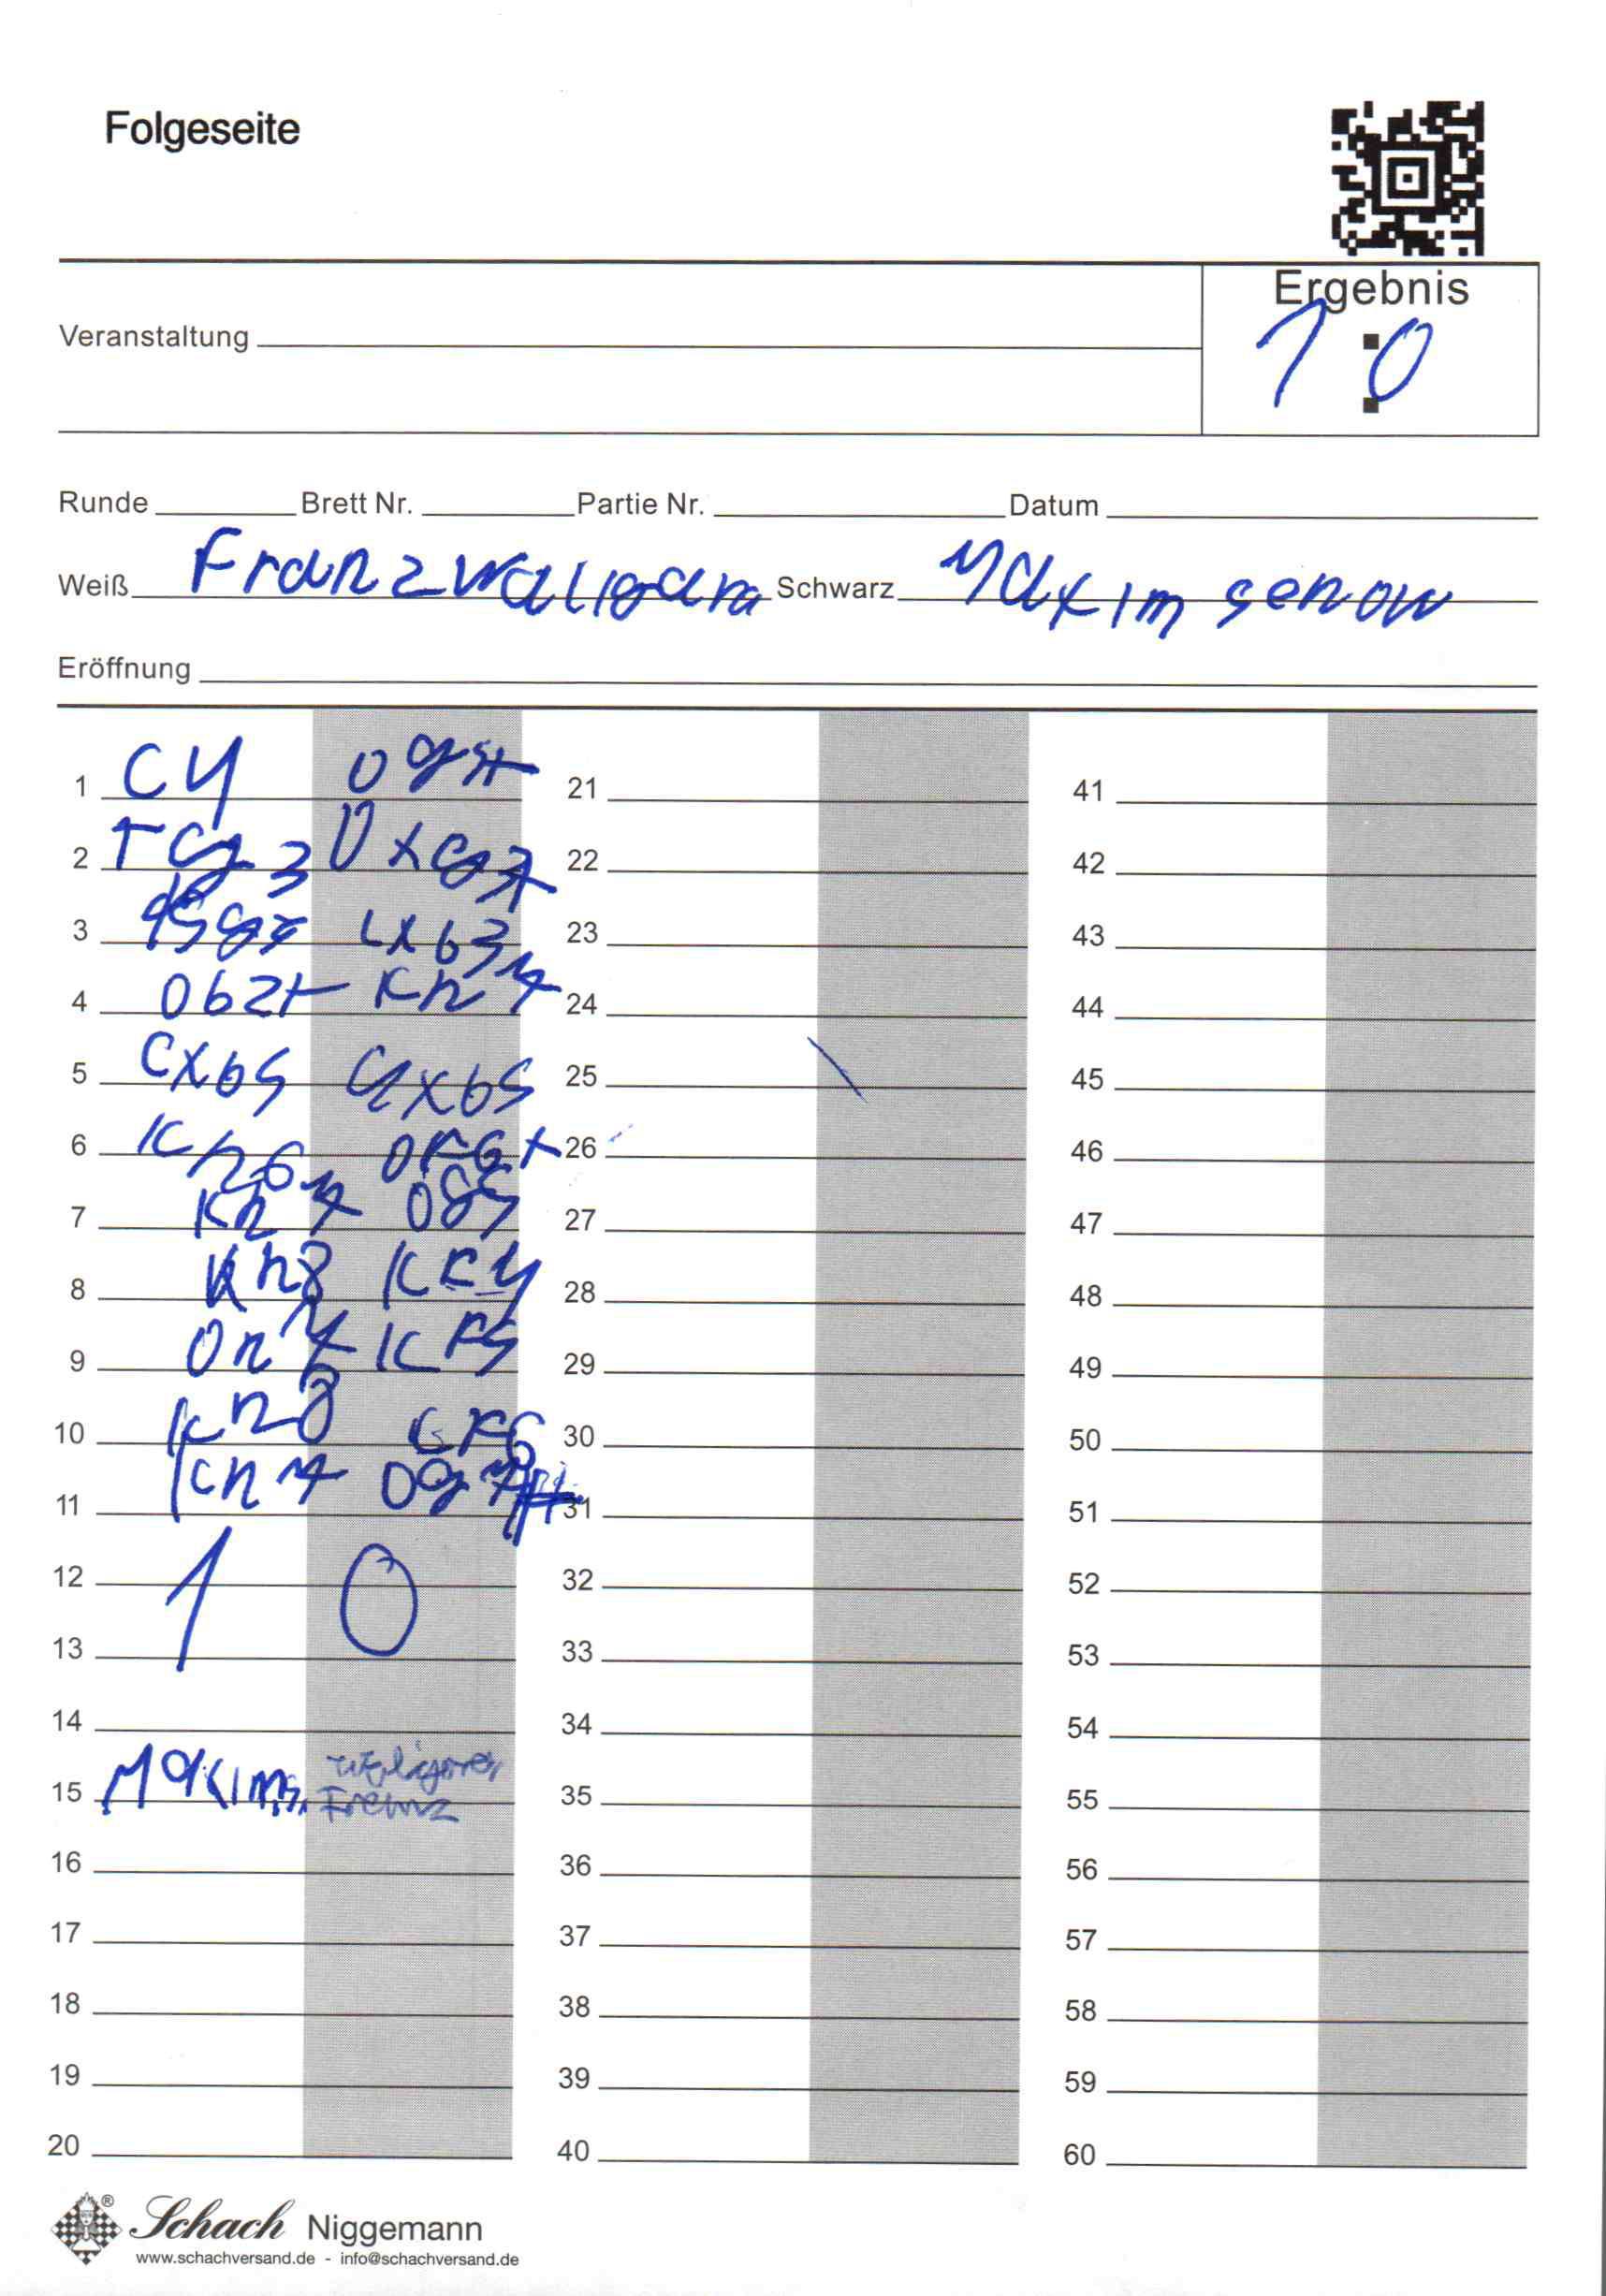 Folgeseite
Ergebnis
1:0
Veranstaltung
Runde Brett Nr. Partie Nr. Datum
Weiß Franz Waligora Schwarz Maxim senow
Eröffnung
1 C4 21 41
2 22 42
3 Lxb3 23 43
4 Db2+ Kh7 24 44
5 Cxb5 axb5 25 45
6 Kh6 DF6+ 26 46
7 Kh7 Dg5 27 47
8 Kh8 KF4 28 48
9 Dh7 KF5 29 49
10 Kh8 LF6 30 50
11 Kh7 Dg7# 31 51
12 1 0 32 52
13 33 53
14 34 54
15 Maxim s. Waligora Franz 35 55
16 36 56
17 37 57
18 38 58
19 39 59
20 40 60
Schach Niggemann
www.schachversand.de - info@schachversand.de